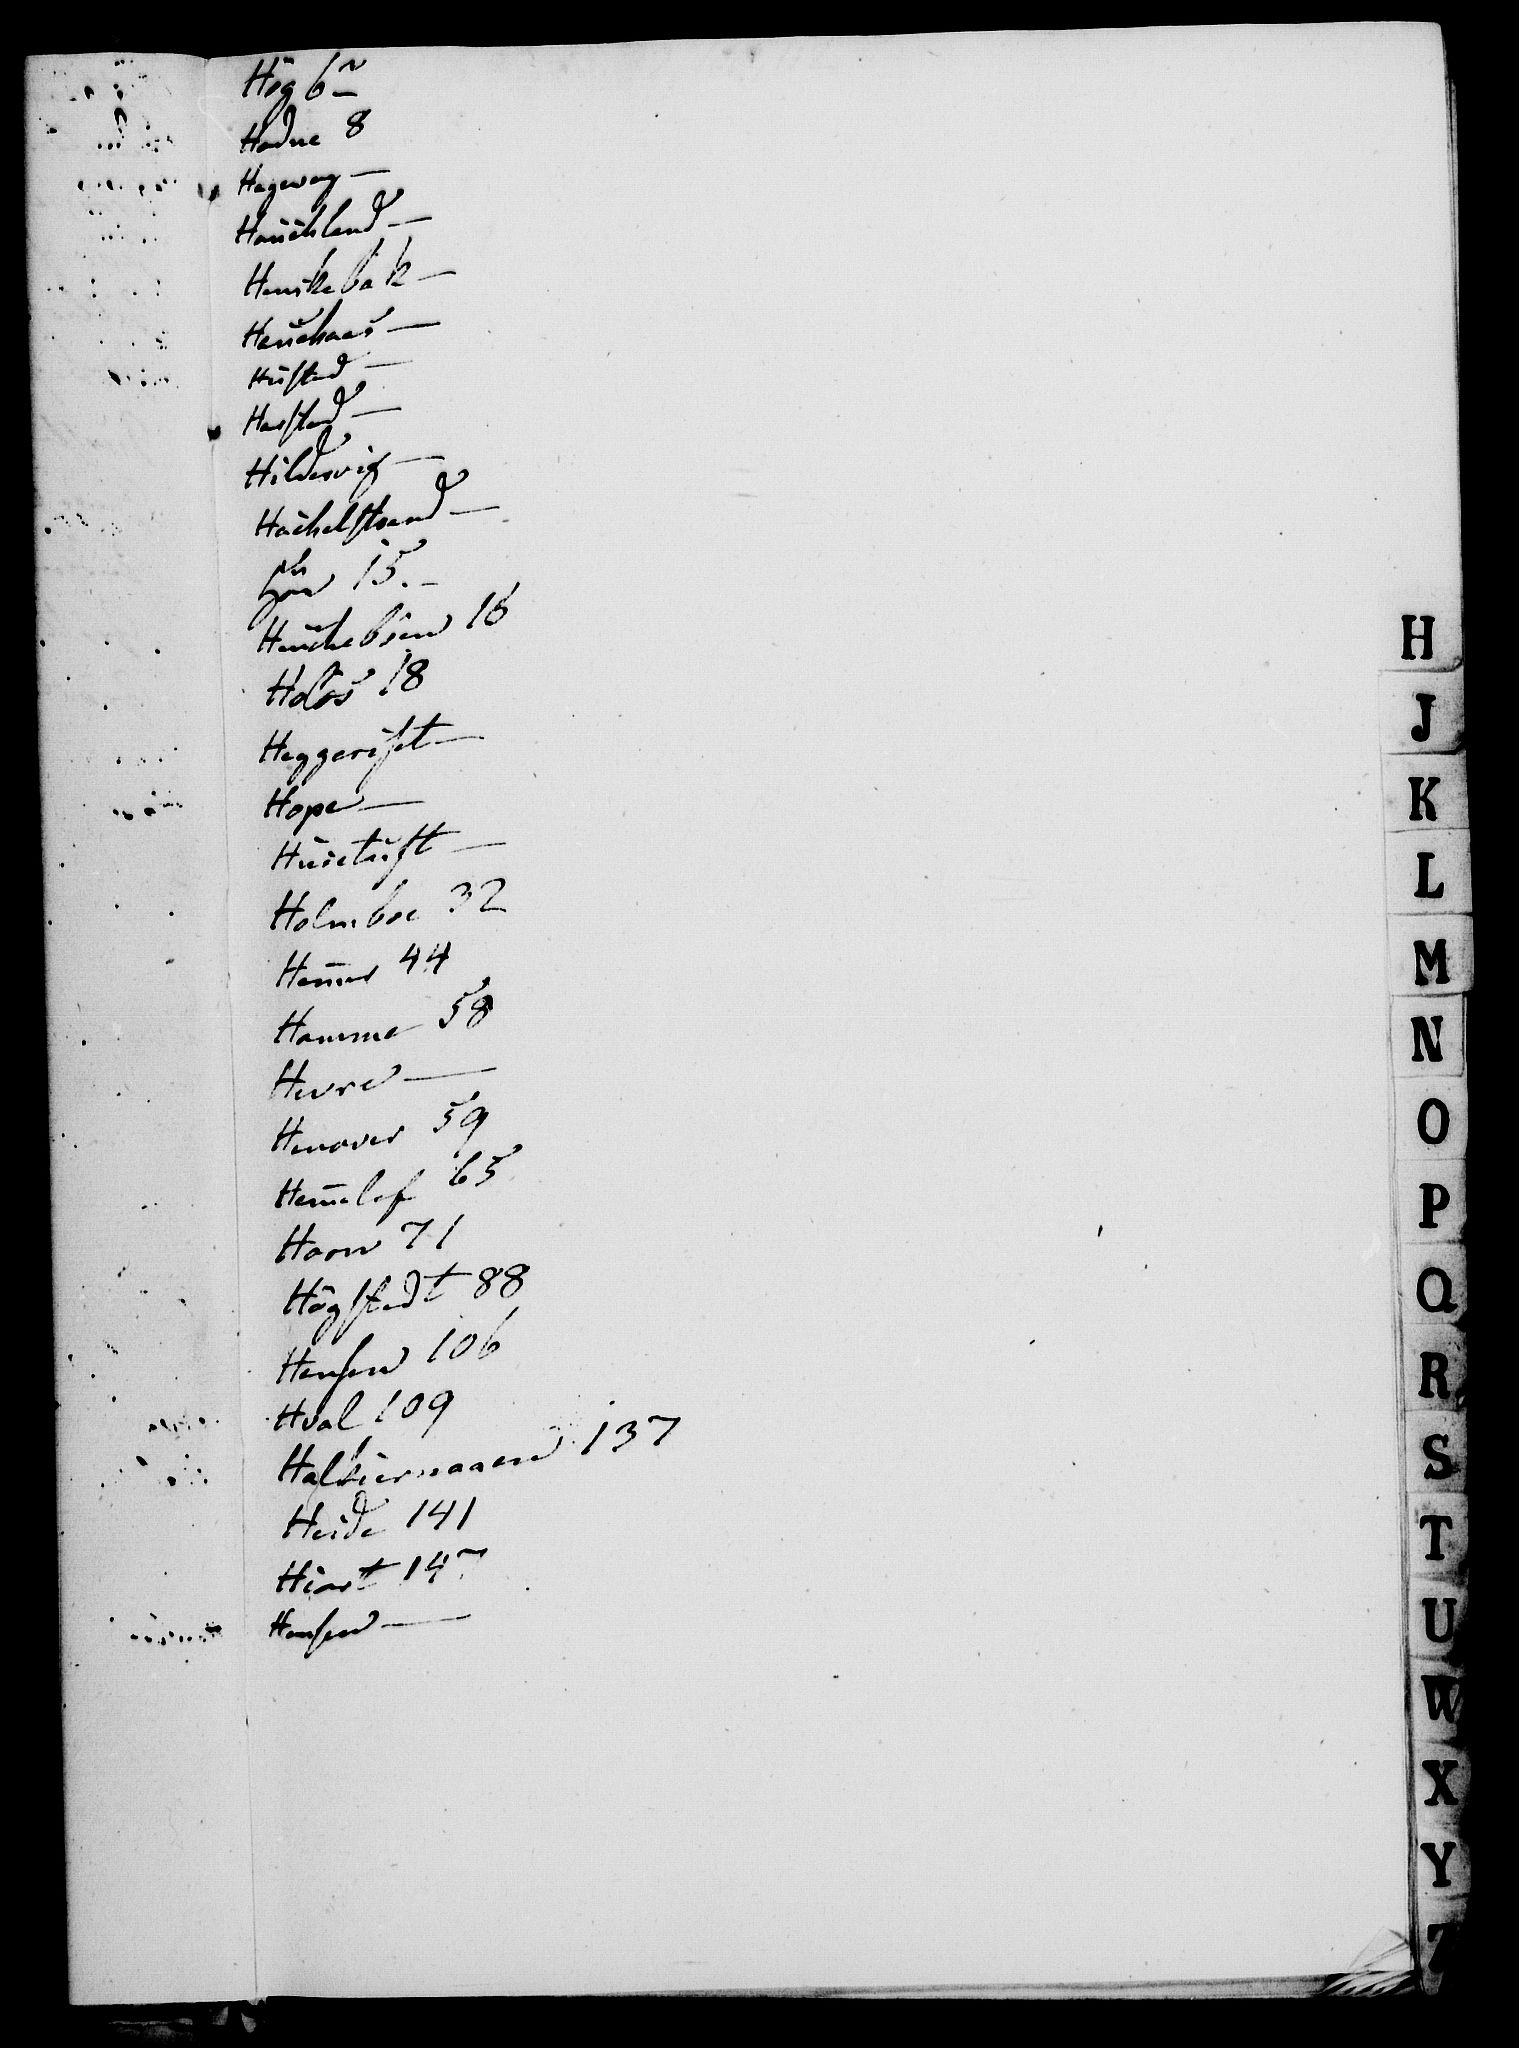 Hög 6
Hodne 8
Hageweg —
Hauchland —
Henikebak —
Hauchaas —
Hustad —
Hastad —
Hildesvig —
Hachelstrand —
15. —
Huchebsen 16
Holos 18
Heggerist —
Hope —
Husetuft —
Holmboe 32
Hem̄er 44
Homme 58
Hevre —
Henover 59
Hem̄elef 65
Hoorn 71
Högstedt 88
Hansen 106
Hval 109
Halsiernaaen 137
Heide 141
Hiort 147
Hansen —
H
J
K
L
M
N
O
P
Q
R
S
T
U
W
X
Y
Z